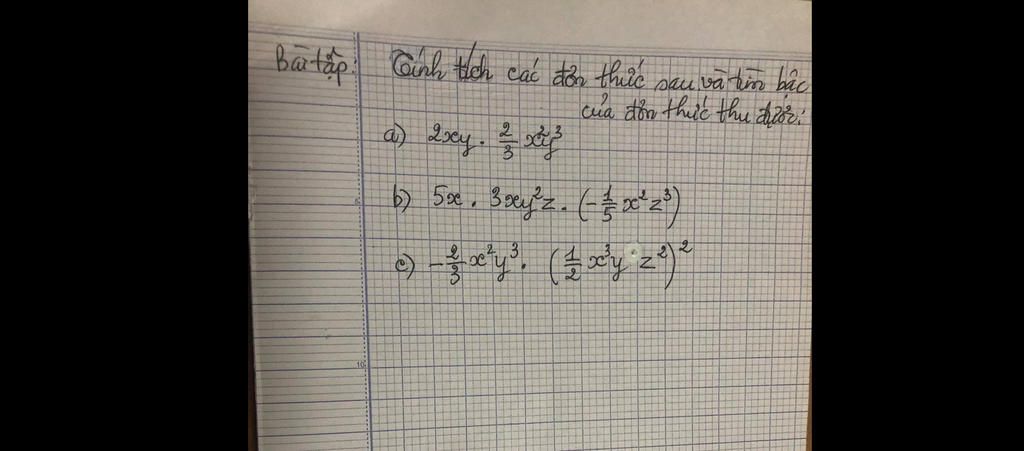 Bài tập: Tính tích các đơn thức sau và tìm bậc
của đơn thức thu được:
a) 2xy . 2/3 x²y³
b) 5x . 3xy²z . (-1/5 x² z³)
c) -2/3 x²y³ . (1/2 x³y z²)²
10